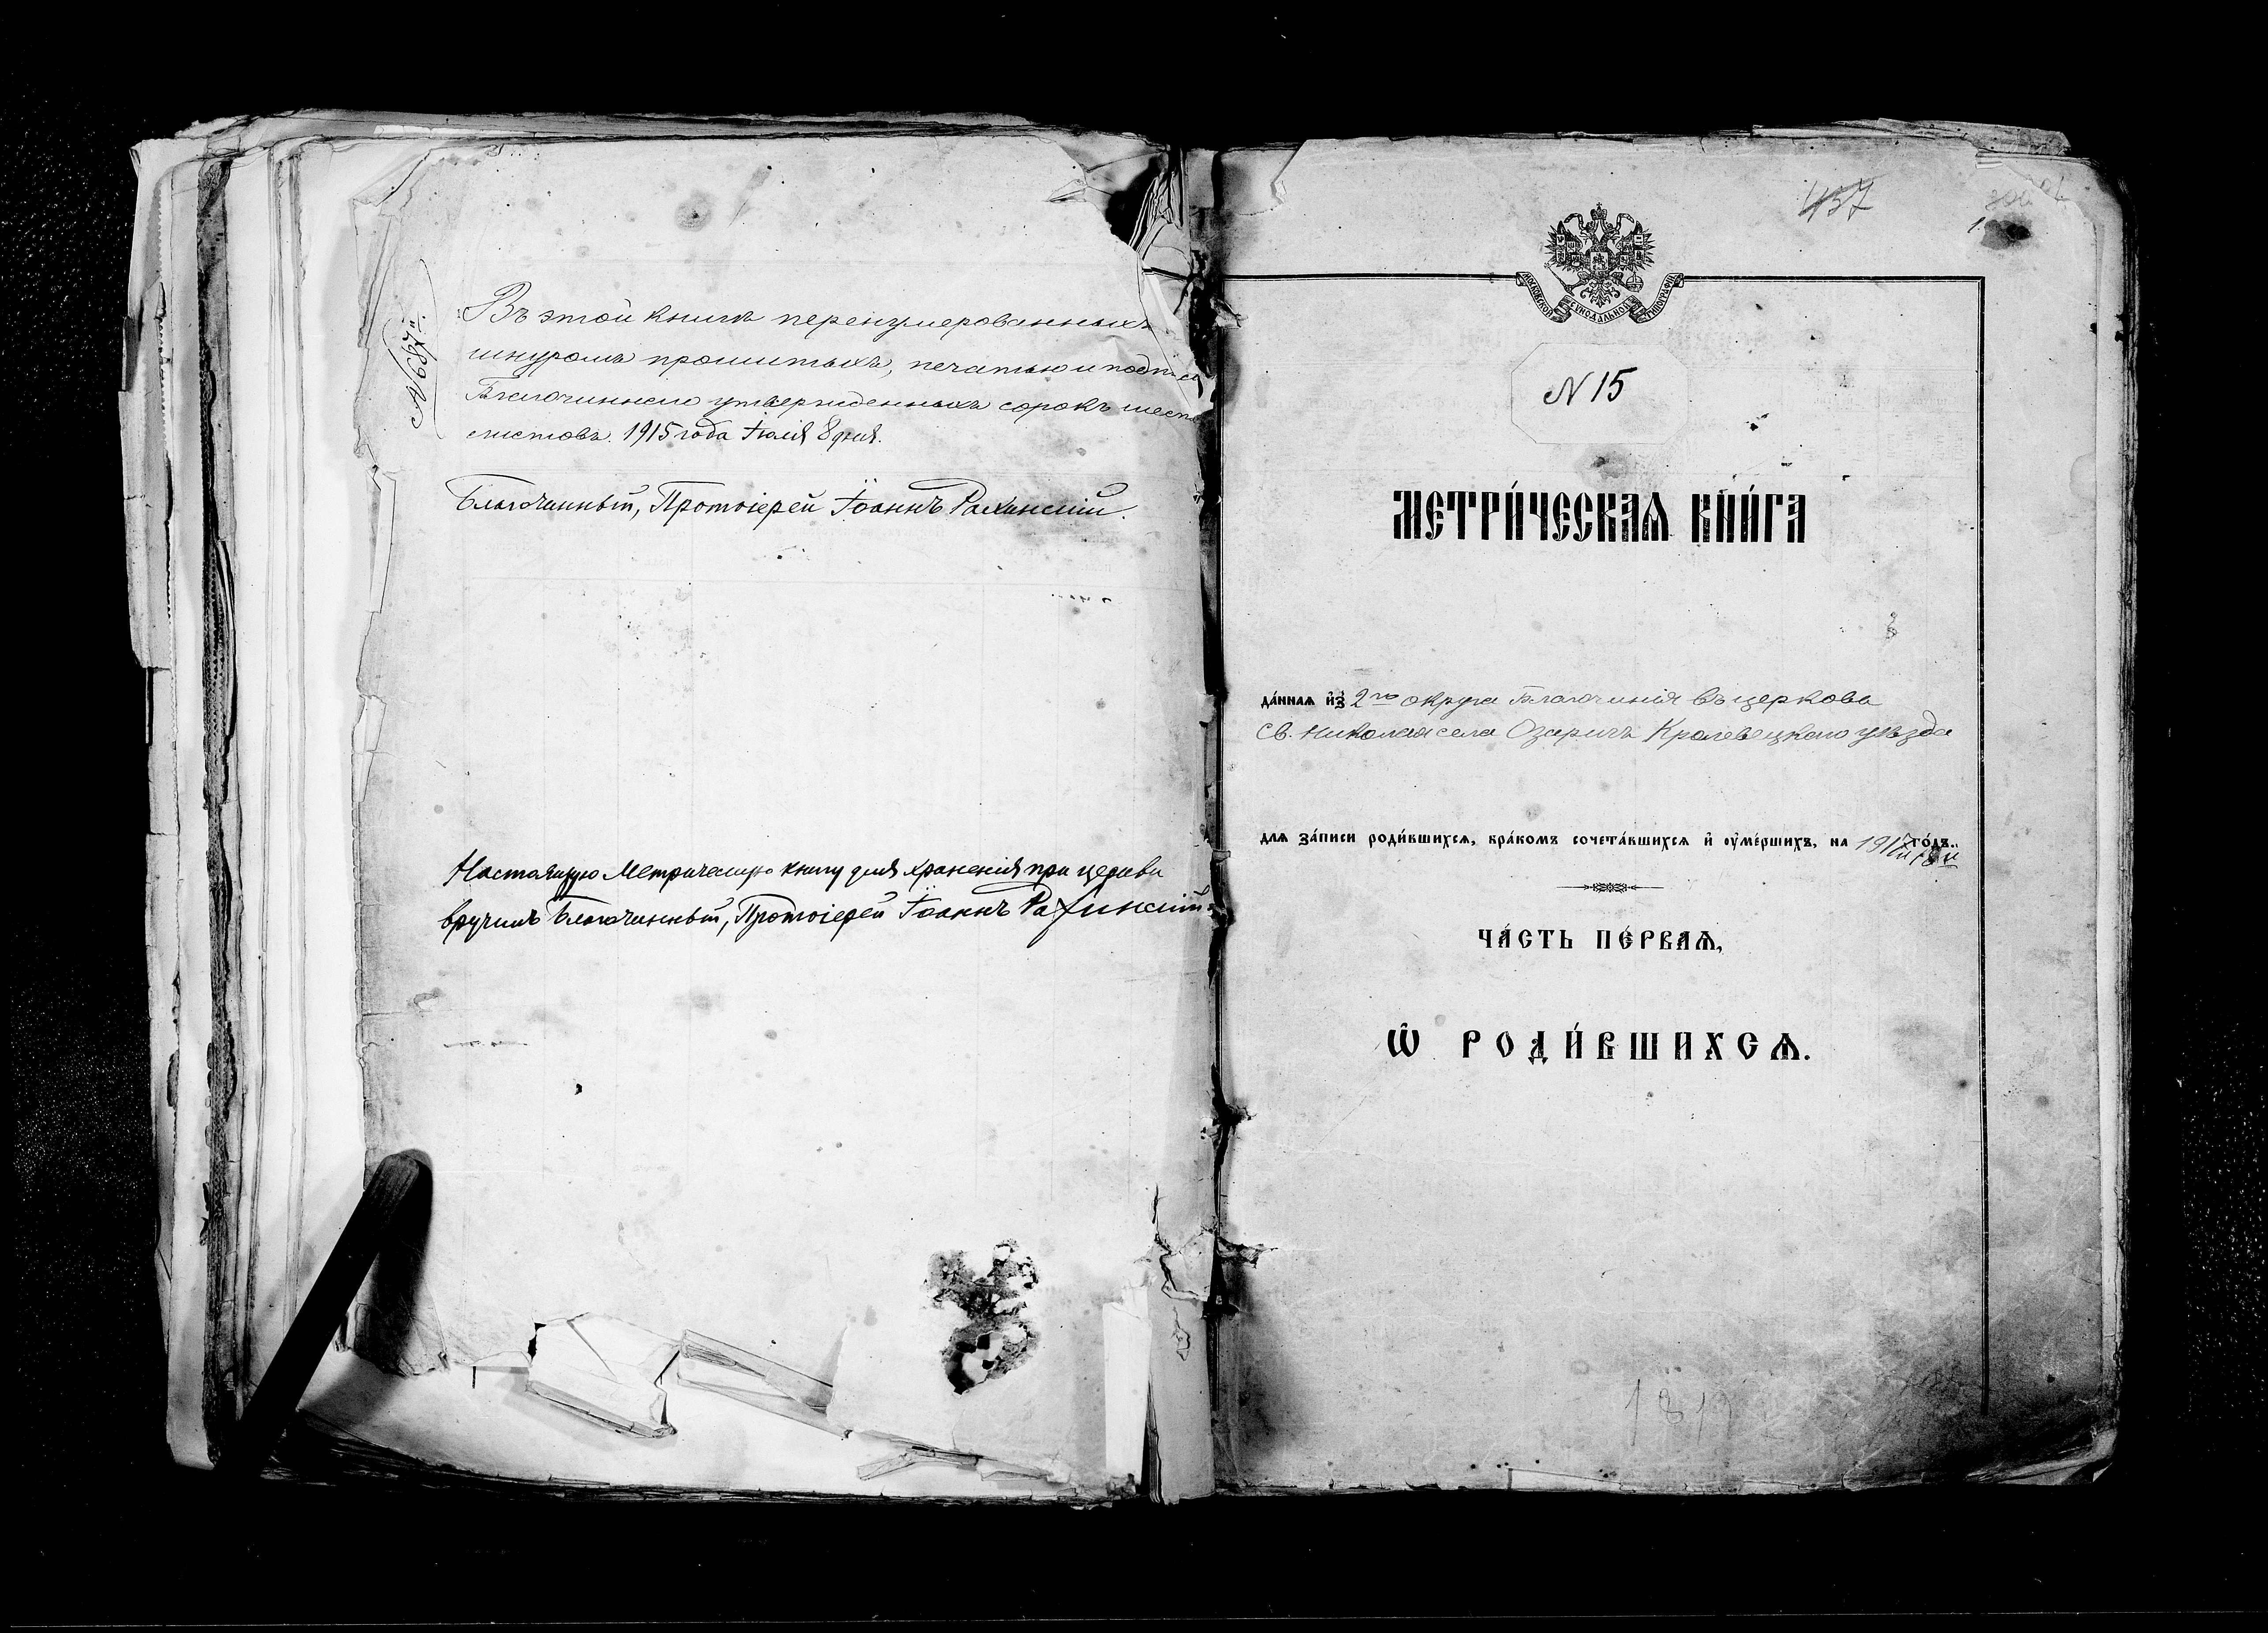 Въ этой книгѣ перенумерованныхъ
шнуромъ прошитыхъ, печатью и подпис
Благочиннаго утвержденныхъ сорокъ шесть
листовъ. 1915 года Іюля 8 дня.
Благочинный, Протоіерей Іоаннъ Рахинскій.
Настоящую Метрическую книгу для храненія при церкви
вручилъ Благочинный, Протоіерей Іоаннъ Рахинскій
457
МОСКОВСКОЙ СѴНОДАЛЬНОЙ ТИПОГРАФІИ
N 15
МЕТРИ́ЧЕСКАѦ КНИ́ГА
ДА́ННАѦ И҆З̾ 2го округа Благочинія въ церковь
Св. Николая села Озаричъ Кролевецкаго уѣзда
ДЛѦ ЗА́ПИСИ РОДИ́ВШИХСѦ, БРА́КОМЪ СОЧЕТА́ВШИХСѦ И҆ ОУ҆МЕ́РШИХЪ, НА 191 ГО́ДЪ.
ЧА́СТЬ ПЕ́РВАѦ,
Ѽ РОДИ́ВШИХСѦ.